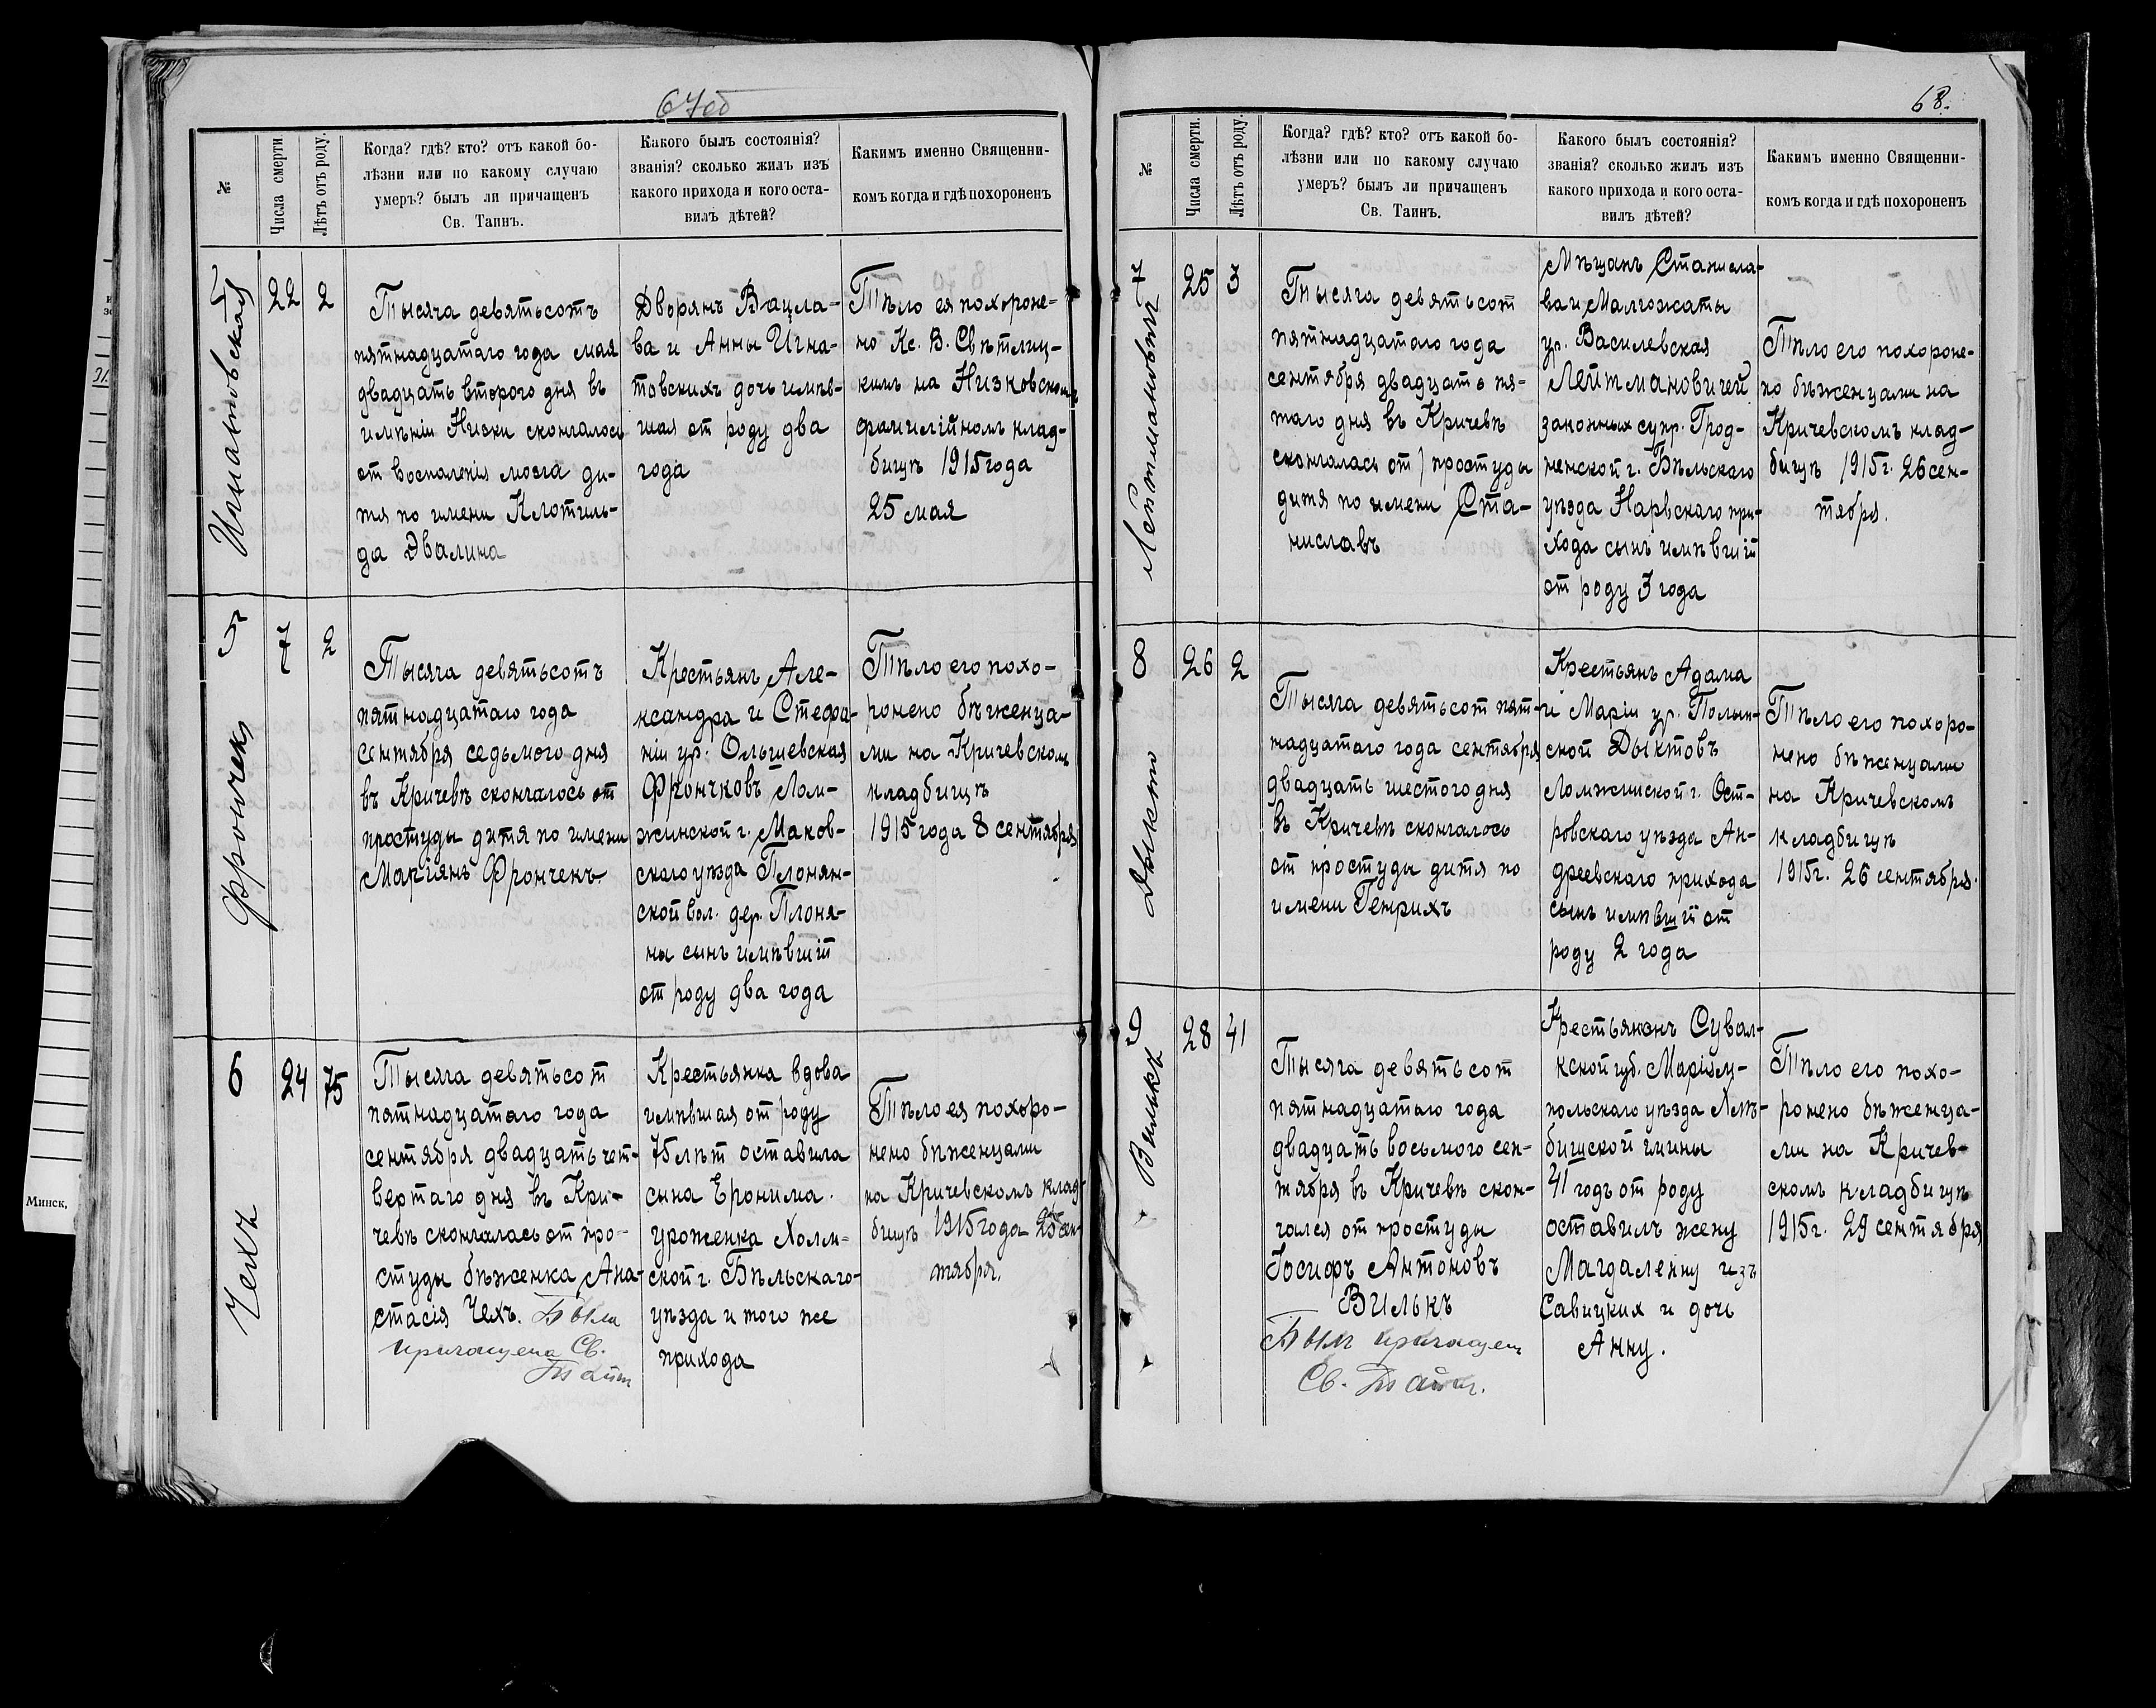 67об
№
Числа смерти.
Лѣтъ отъ роду.
Когда? гдѣ? кто? отъ какой бо-
лѣзни или по какому случаю
умеръ? былъ ли причащенъ
Св. Таинъ.
Какого былъ состоянія?
званія? сколько жилъ изъ
какого прихода и кого оста-
вилъ дѣтей?
Какимъ именно Священни-
комъ когда и гдѣ похороненъ
Игнатовская
22
2
Тысяча девятьсотъ
пятнадцатаго года мая
двадцать второго дня въ
имѣніи Ниски скончалось
от воспаленія мозга ди-
тя по имени Клотиль-
да Эвалина
Дворянъ Вацла-
ва и Анны Игна-
товскихъ дочь имѣв-
шая от роду два
года
Тѣло ея похороне-
но Кс. В. Свѣтлиц-
кимъ на Низковском
фамилійномъ клад-
бищѣ 1915 года
25 мая
5
Фрончекъ
7
2
Тысяча девятьсотъ
пятнадцатаго года
сентября седьмого дня
въ Кричевѣ скончалось от
простуды дитя по имени
Маріянъ Фрончекъ.
Крестьянъ Але-
ксандра и Стефа-
ніи ур. Ольшевская
Фрончковъ Лом-
жинской г. Маков-
скаго уѣзда Плонян-
ской вол. дер. Плоня-
ны сынъ имѣвшій
от роду два года
Тѣло его похо-
ронено бѣженца-
ми на Кричевском
кладбищѣ
1915 года 8 сентября
6
Чехъ
24
75
Тысяча девятьсот
пятнадцатаго года
сентября двадцать чет-
вертаго дня въ Кри-
чевѣ скончалась от про-
студы бѣженка Ана-
стасія Чехъ. Была
причащена Св.
Таин
Крестьянка вдова
имѣвшая от роду
75 лѣт оставила
сына Еронима.
уроженка Холм-
ской г. Бѣльскаго
уѣзда и того же
прихода
Тѣло ея похоро-
нено бѣженцами
на Кричевскомъ клад-
бищѣ 1915 года 25 сен-
тября.
68.
№
Числа смерти.
Лѣтъ отъ роду.
Когда? гдѣ? кто? отъ какой бо-
лѣзни или по какому случаю
умеръ? былъ ли причащенъ
Св. Таинъ.
Какого былъ состоянія?
званія? сколько жилъ изъ
какого прихода и кого оста-
вилъ дѣтей?
Какимъ именно Священни-
комъ когда и гдѣ похороненъ
7
Лейтмановичъ
25
3
Тысяча девятьсот
пятнадцатаго года
сентября двадцать пя-
таго дня въ Кричевѣ
скончалась от простуды
дитя по имени Ста-
ниславъ
Мѣщанъ Станисла-
ва и Малгожаты
ур. Василевская
Лейтмановичей
законных супр. Грод-
ненской г. Бѣльскаго
уѣзда Нарвскаго при-
хода сынъ имѣвшій
от роду 3 года
Тѣло его похороне-
но бѣженцами на
Кричевскомъ клад-
бищѣ 1915 г. 26 сен-
тября.
8
Дыкто
26
2
Тысяча девятьсот пят-
надцатаго года сентября
двадцать шестого дня
въ Кричевѣ скончалось
от простуды дитя по
имени Генрихъ
Крестьянъ Адама
и Маріи ур. Полын-
ской Дыктовъ
Ломжинской г. Ост-
ровскаго уѣзда Ан-
дреевскаго прихода
сынъ имѣвшій от
роду 2 года
Тѣло его похоро-
нено бѣженцами
на Кричевскомъ
кладбищѣ
1915 г. 26 сентября.
9
Вилькъ
28
41
Тысяча девятьсот
пятнадцатаго года
двадцать восьмого сен-
тября въ Кричевѣ скон-
чался от простуды
Іосифъ Антоновъ
Вилькъ
Был причащен
Св. Таин.
Крестьянинъ Сувал-
кской губ. Маріам-
польскаго уѣзда
бишской гмины
41 годъ от роду
оставилъ жену
Магдаленну изъ
Савицких и дочь
Анну.
Тѣло его похо-
ронено бѣженца-
ми на Кричев-
скомъ кладбищѣ
1915 г. 29 сентября
Минск,